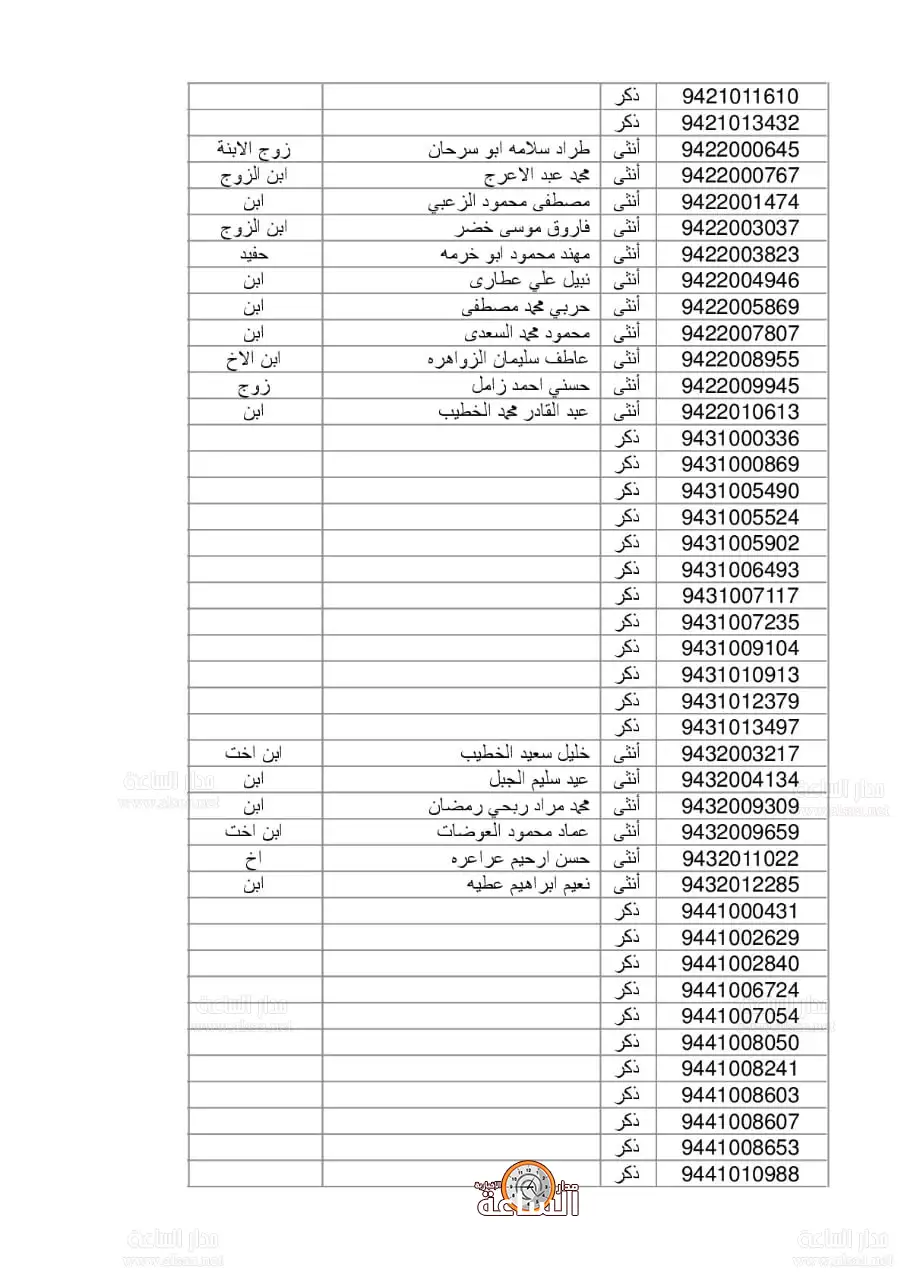 9421011610 ذكر
9421013432 ذكر
9422000645 أنثى طراد سلامه ابو سرحان زوج الابنة
9422000767 أنثى محمد عبد الاعرج ابن الزوج
9422001474 أنثى مصطفى محمود الزعبي ابن
9422003037 أنثى فاروق موسى خضر ابن الزوج
9422003823 أنثى مهند محمود ابو خرمه حفيد
9422004946 أنثى نبيل علي عطارى ابن
9422005869 أنثى حربي محمد مصطفى ابن
9422007807 أنثى محمود محمد السعدى ابن
9422008955 أنثى عاطف سليمان الزواهره ابن الاخ
9422009945 أنثى حسني احمد زامل زوج
9422010613 أنثى عبد القادر محمد الخطيب ابن
9431000336 ذكر
9431000869 ذكر
9431005490 ذكر
9431005524 ذكر
9431005902 ذكر
9431006493 ذكر
9431007117 ذكر
9431007235 ذكر
9431009104 ذكر
9431010913 ذكر
9431012379 ذكر
9431013497 ذكر
9432003217 أنثى خليل سعيد الخطيب ابن اخت
9432004134 أنثى عيد سليم الجبل ابن
9432009309 أنثى محمد مراد ربحي رمضان ابن
9432009659 أنثى عماد محمود العوضات ابن اخت
9432011022 أنثى حسن ارحيم عراعره اخ
9432012285 أنثى نعيم ابراهيم عطيه ابن
9441000431 ذكر
9441002629 ذكر
9441002840 ذكر
9441006724 ذكر
9441007054 ذكر
9441008050 ذكر
9441008241 ذكر
9441008603 ذكر
9441008607 ذكر
9441008653 ذكر
9441010988 ذكر
مدار الساعة الإخبارية
مدار الساعة
www.alsaa.net
مدار الساعة
www.alsaa.net
مدار الساعة
www.alsaa.net
مدار الساعة
www.alsaa.net
مدار الساعة
www.alsaa.net
مدار الساعة
www.alsaa.net